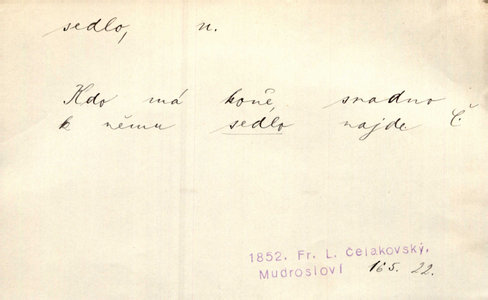 sedlo, n.
Kdo má koně, snadno
k němu sedlo najde Č.
1852. Fr. L. Čelakovský,
Mudrosloví 165. 22.